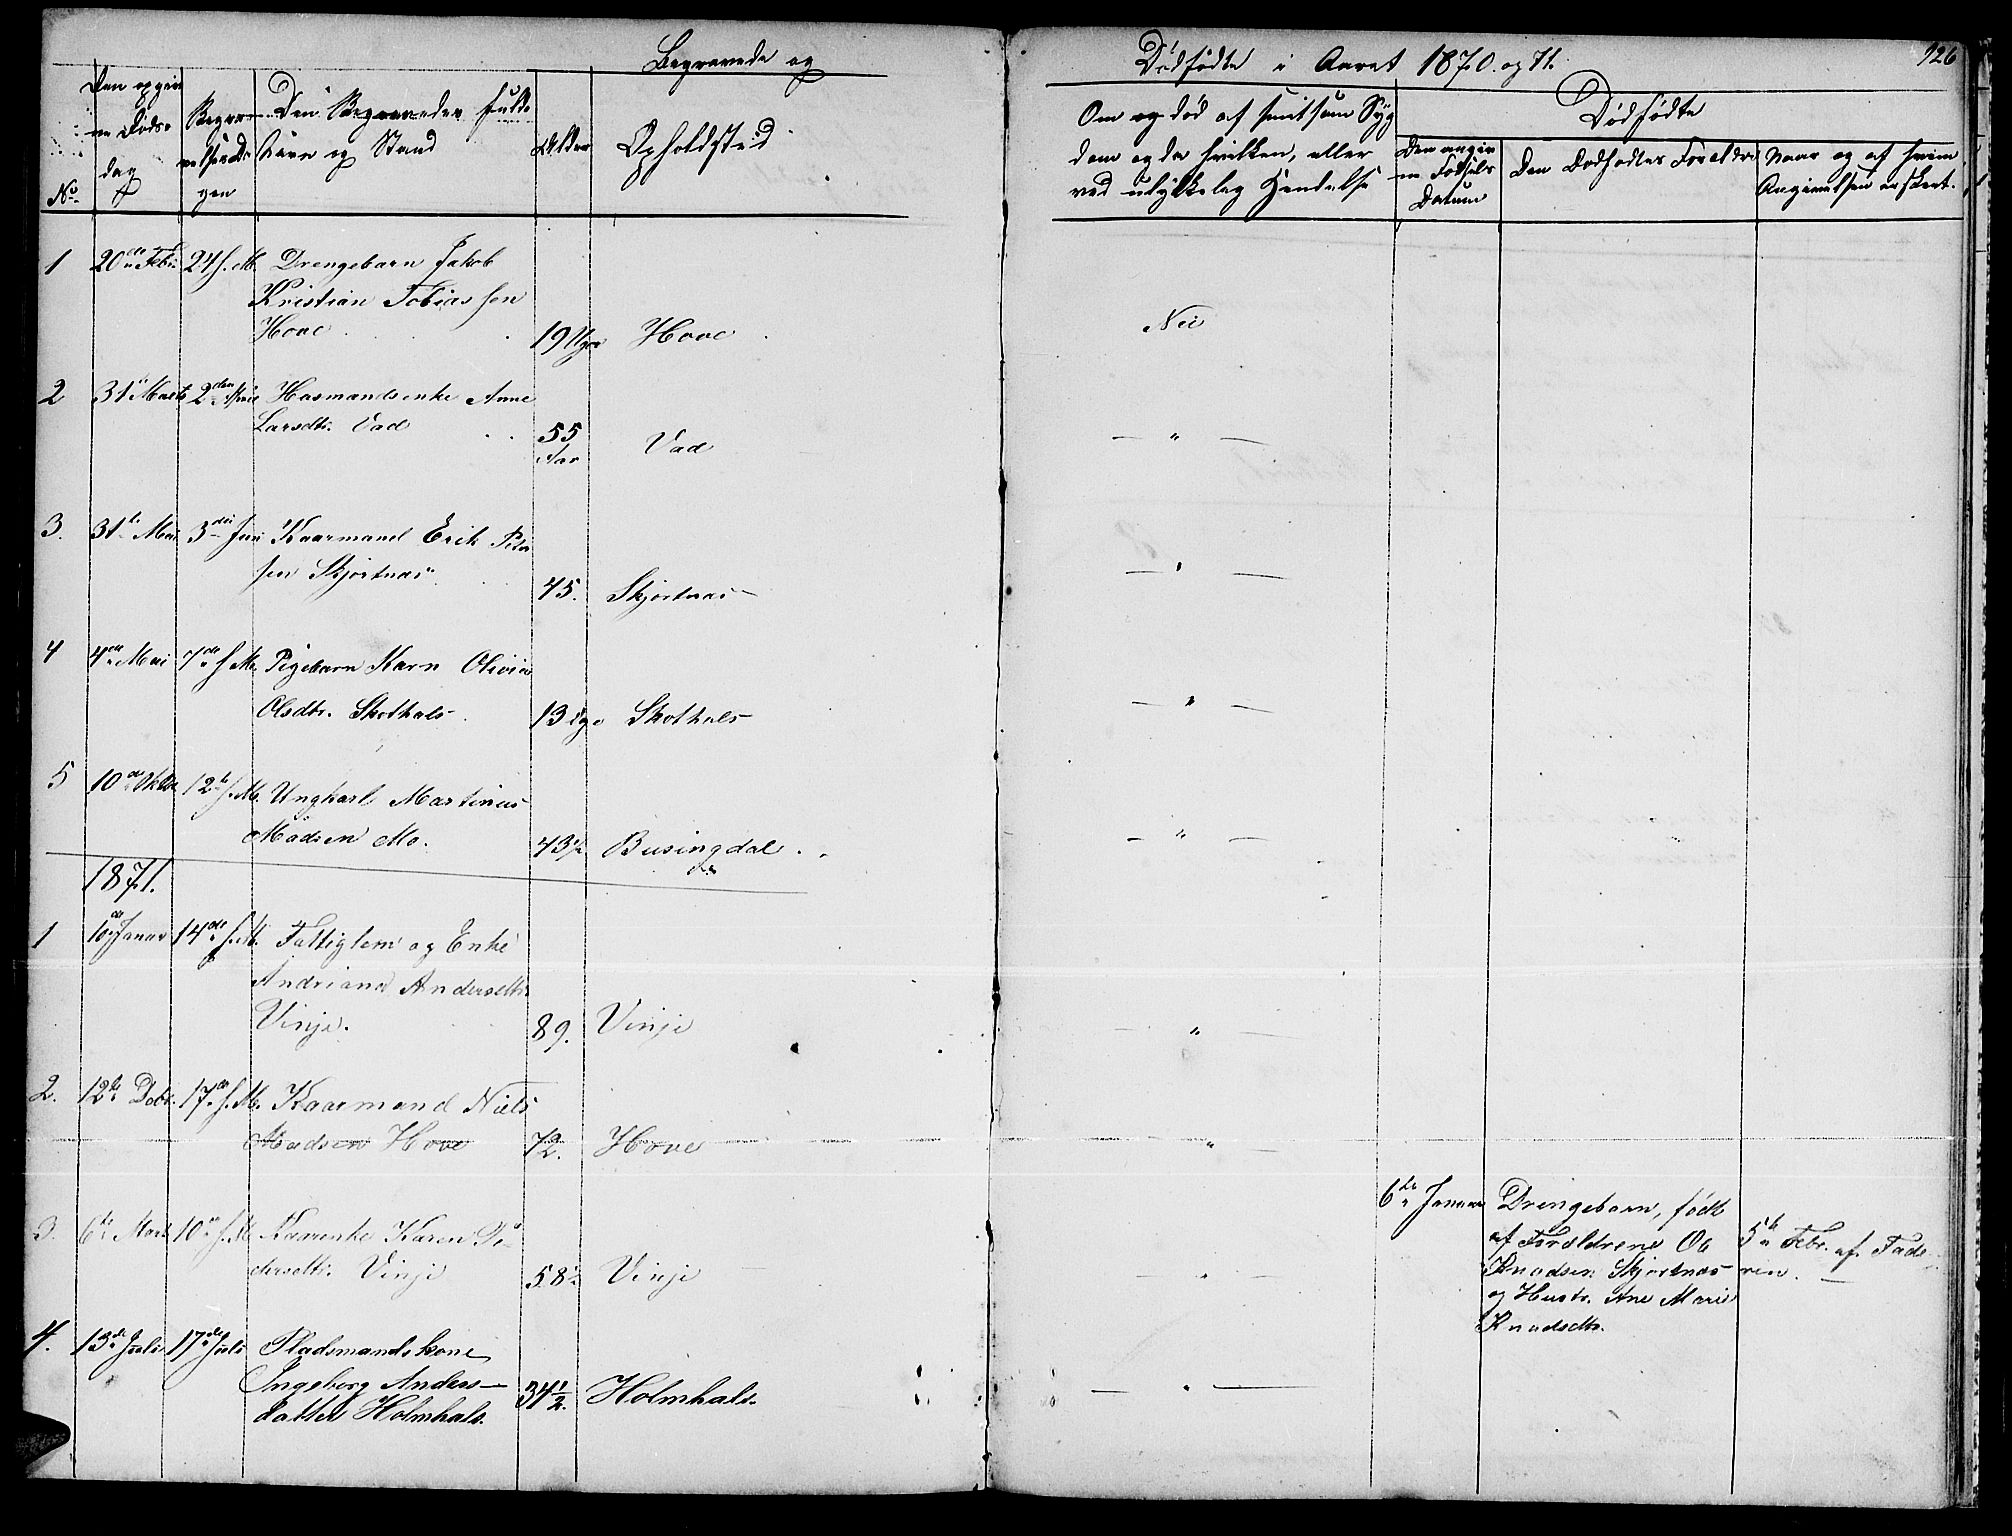 Begravede og
Dødfødte i Aaret 1870. og 71.
126
No.
Den opgivne Døds-
dag
Begra-
velsesda-
gen
Den Begravedes fulde
Navn og Stand
Alder
Opholdsted
Om og død af smitsom Syg
dom og da hvilken, eller
ved ulykkelig Hendelse
Dødfødte
Den angiv
ne Fødsels
Datum
Den Dødfødtes Foreldre
Naar og af hvem
Angivelsen er skeet.
1 20de Febr. 24 s. M. Drengebarn Jakob
Kristian Tobiassen
Hove 19 Uger Hove Nei
2 31te Marts 2den April Husmandsenke Anne
Larsdtr. Vad 55 Aar Vad — " —
3. 31te Mai 3die Juni Kaarmand Erik Peter
sen Skjortnæs 45. Skjortnæs — " —
4 4de Mai 7de s. M. Pigebarn Karn Olivia
Olsdtr. Skothals 13 Uger Skothals — " —
5 10de Oktbr. 12te s. M. Ungkarl Martinus
Madsen Mo. 43½ Busingdal — " —
1871.
1 10de Januar 14de s. M. Fattiglem og Enke
Andriana Andersdtr.
Vinje. 89. Vinje — " —
2. 12te Debr. 17de s. M. Kaarmand Niels
Madsen Hove 72. Hove — " —
3. 6te Marts 10de s. M. Kaarenke Karen Pe-
dersdtr. Vinje 58½ Vinje — " —
6te Januar Drengebarn, født
af Foreldrene Ole
Knudsen Skjortnæs
og Hustr. Ane Marie
Knudsdtr.
5te Febr. af Fade-
ren. —
4. 13de Juli 17de Juli Pladsmandskone
Ingeborg Anders-
datter Holmhals. 34½. Holmhals. — " —